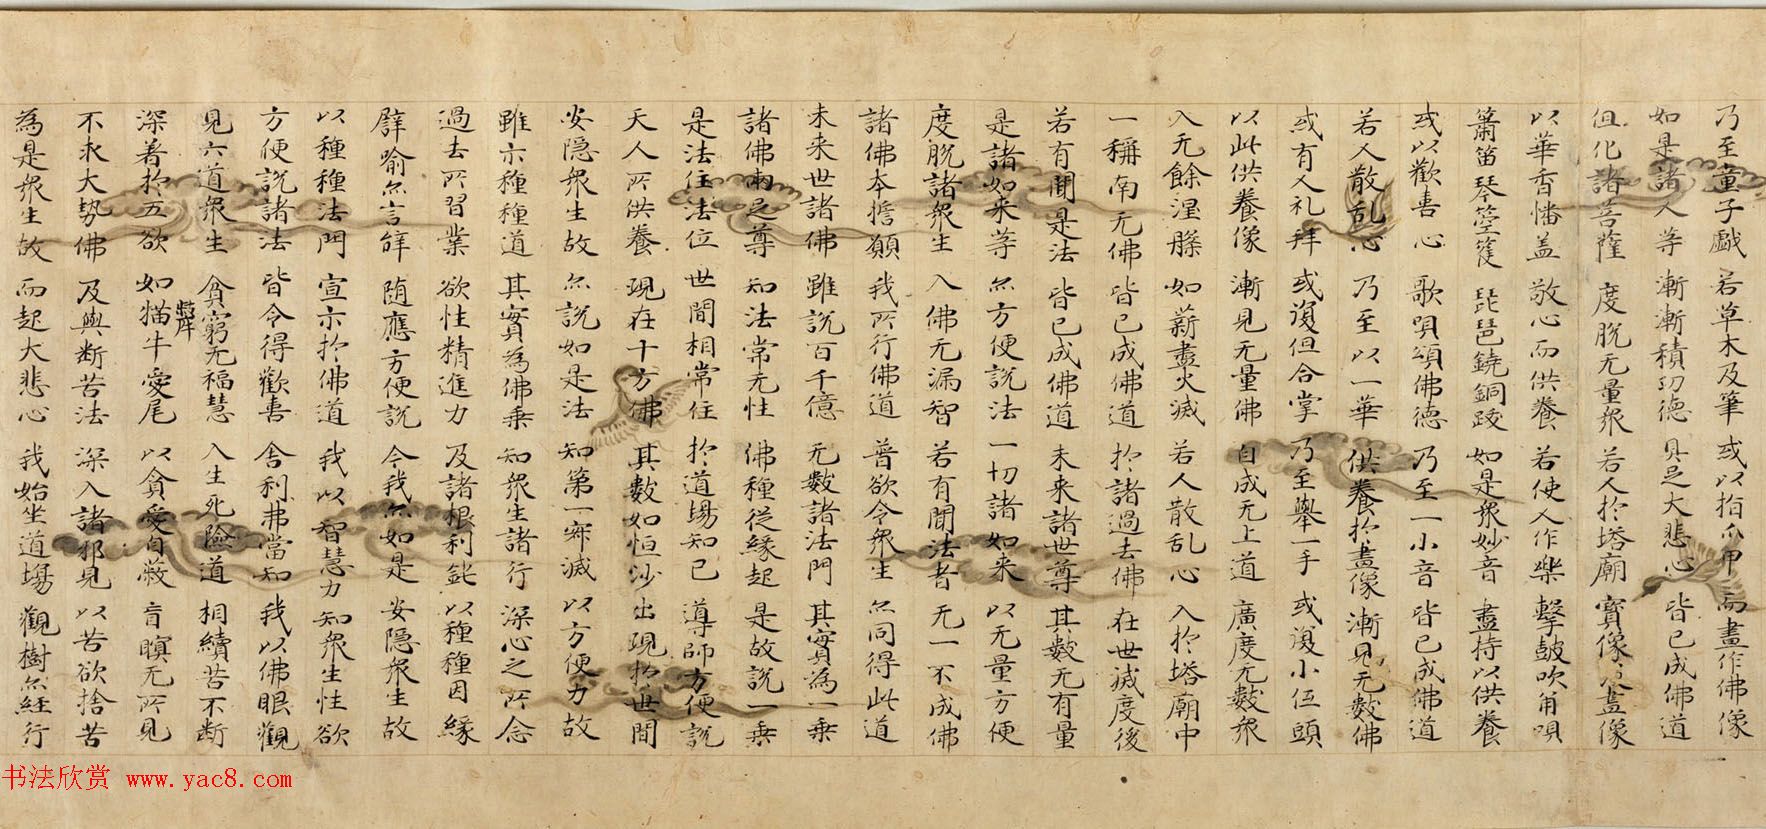 乃至童子戯　若草木及筆　或以指爪甲　而畫作佛像
如是諸人等　漸漸積功德　具足大悲心　皆已成佛道
但化諸菩薩　度脱无量衆　若人於塔廟　寶像及畫像
以華香幡盖　敬心而供養　若使人作樂　擊皷吹角唄
簫笛琴箜篌　琵琶鐃銅跋　如是衆妙音　盡持以供養
或以歡喜心　歌唄頌佛德　乃至一小音　皆已成佛道
若人散乱心　乃至以一華　供養於畫像　漸見无數佛
或有人礼拜　或復但合掌　乃至舉一手　或復小伍頭
以此供養像　漸見无量佛　自成无上道　廣度无數衆
入无餘涅槃　如薪盡火滅　若人散乱心　入於塔廟中
一稱南无佛　皆已成佛道　於諸過去佛　在世滅度後
若有聞是法　皆已成佛道　未来諸世尊　其數无有量
是諸如来等　亦方便說法　一切諸如来　以无量方便
度脱諸衆生　入佛无漏智　若有聞法者　无一不成佛
諸佛本擔願　我所行佛道　普欲令衆生　亦同得此道
未来世諸佛　雖說百千億　无數諸法門　其實為一乗
諸佛兩足尊　知法常无性　佛種従緣起　是故說一乗
是法住法位　世間相常住　於道場知已　導師方便說
天人所供養　現在十方佛　其數如恒沙　出現於世間
安隐衆生故　亦說如是法　知第一寂滅　以方便力故
雖示種種道　其實為佛乗　知衆生諸行　深心之所念
過去所習業　欲性精進力　及諸根利鈍　以種種因緣
譬喻亦言辝　随應方便說　今我亦如是　安隐衆生故
以種種法門　宣示於佛道　我以智慧力　知衆生性欲
方便說諸法　皆令得歡喜　舍利弗當知　我以佛眼觀
見六道衆生　貪窮无福慧　入生死險道　相續苦不断
深著於五欲　如猫牛愛尾　以貪愛自蔽　盲瞑无所見
不求大勢佛　及與断苦法　深入諸邪見　以苦欲捨苦
為是衆生故　而起大悲心　我始坐道場　觀樹亦経行
书法欣赏 www.yac8.com